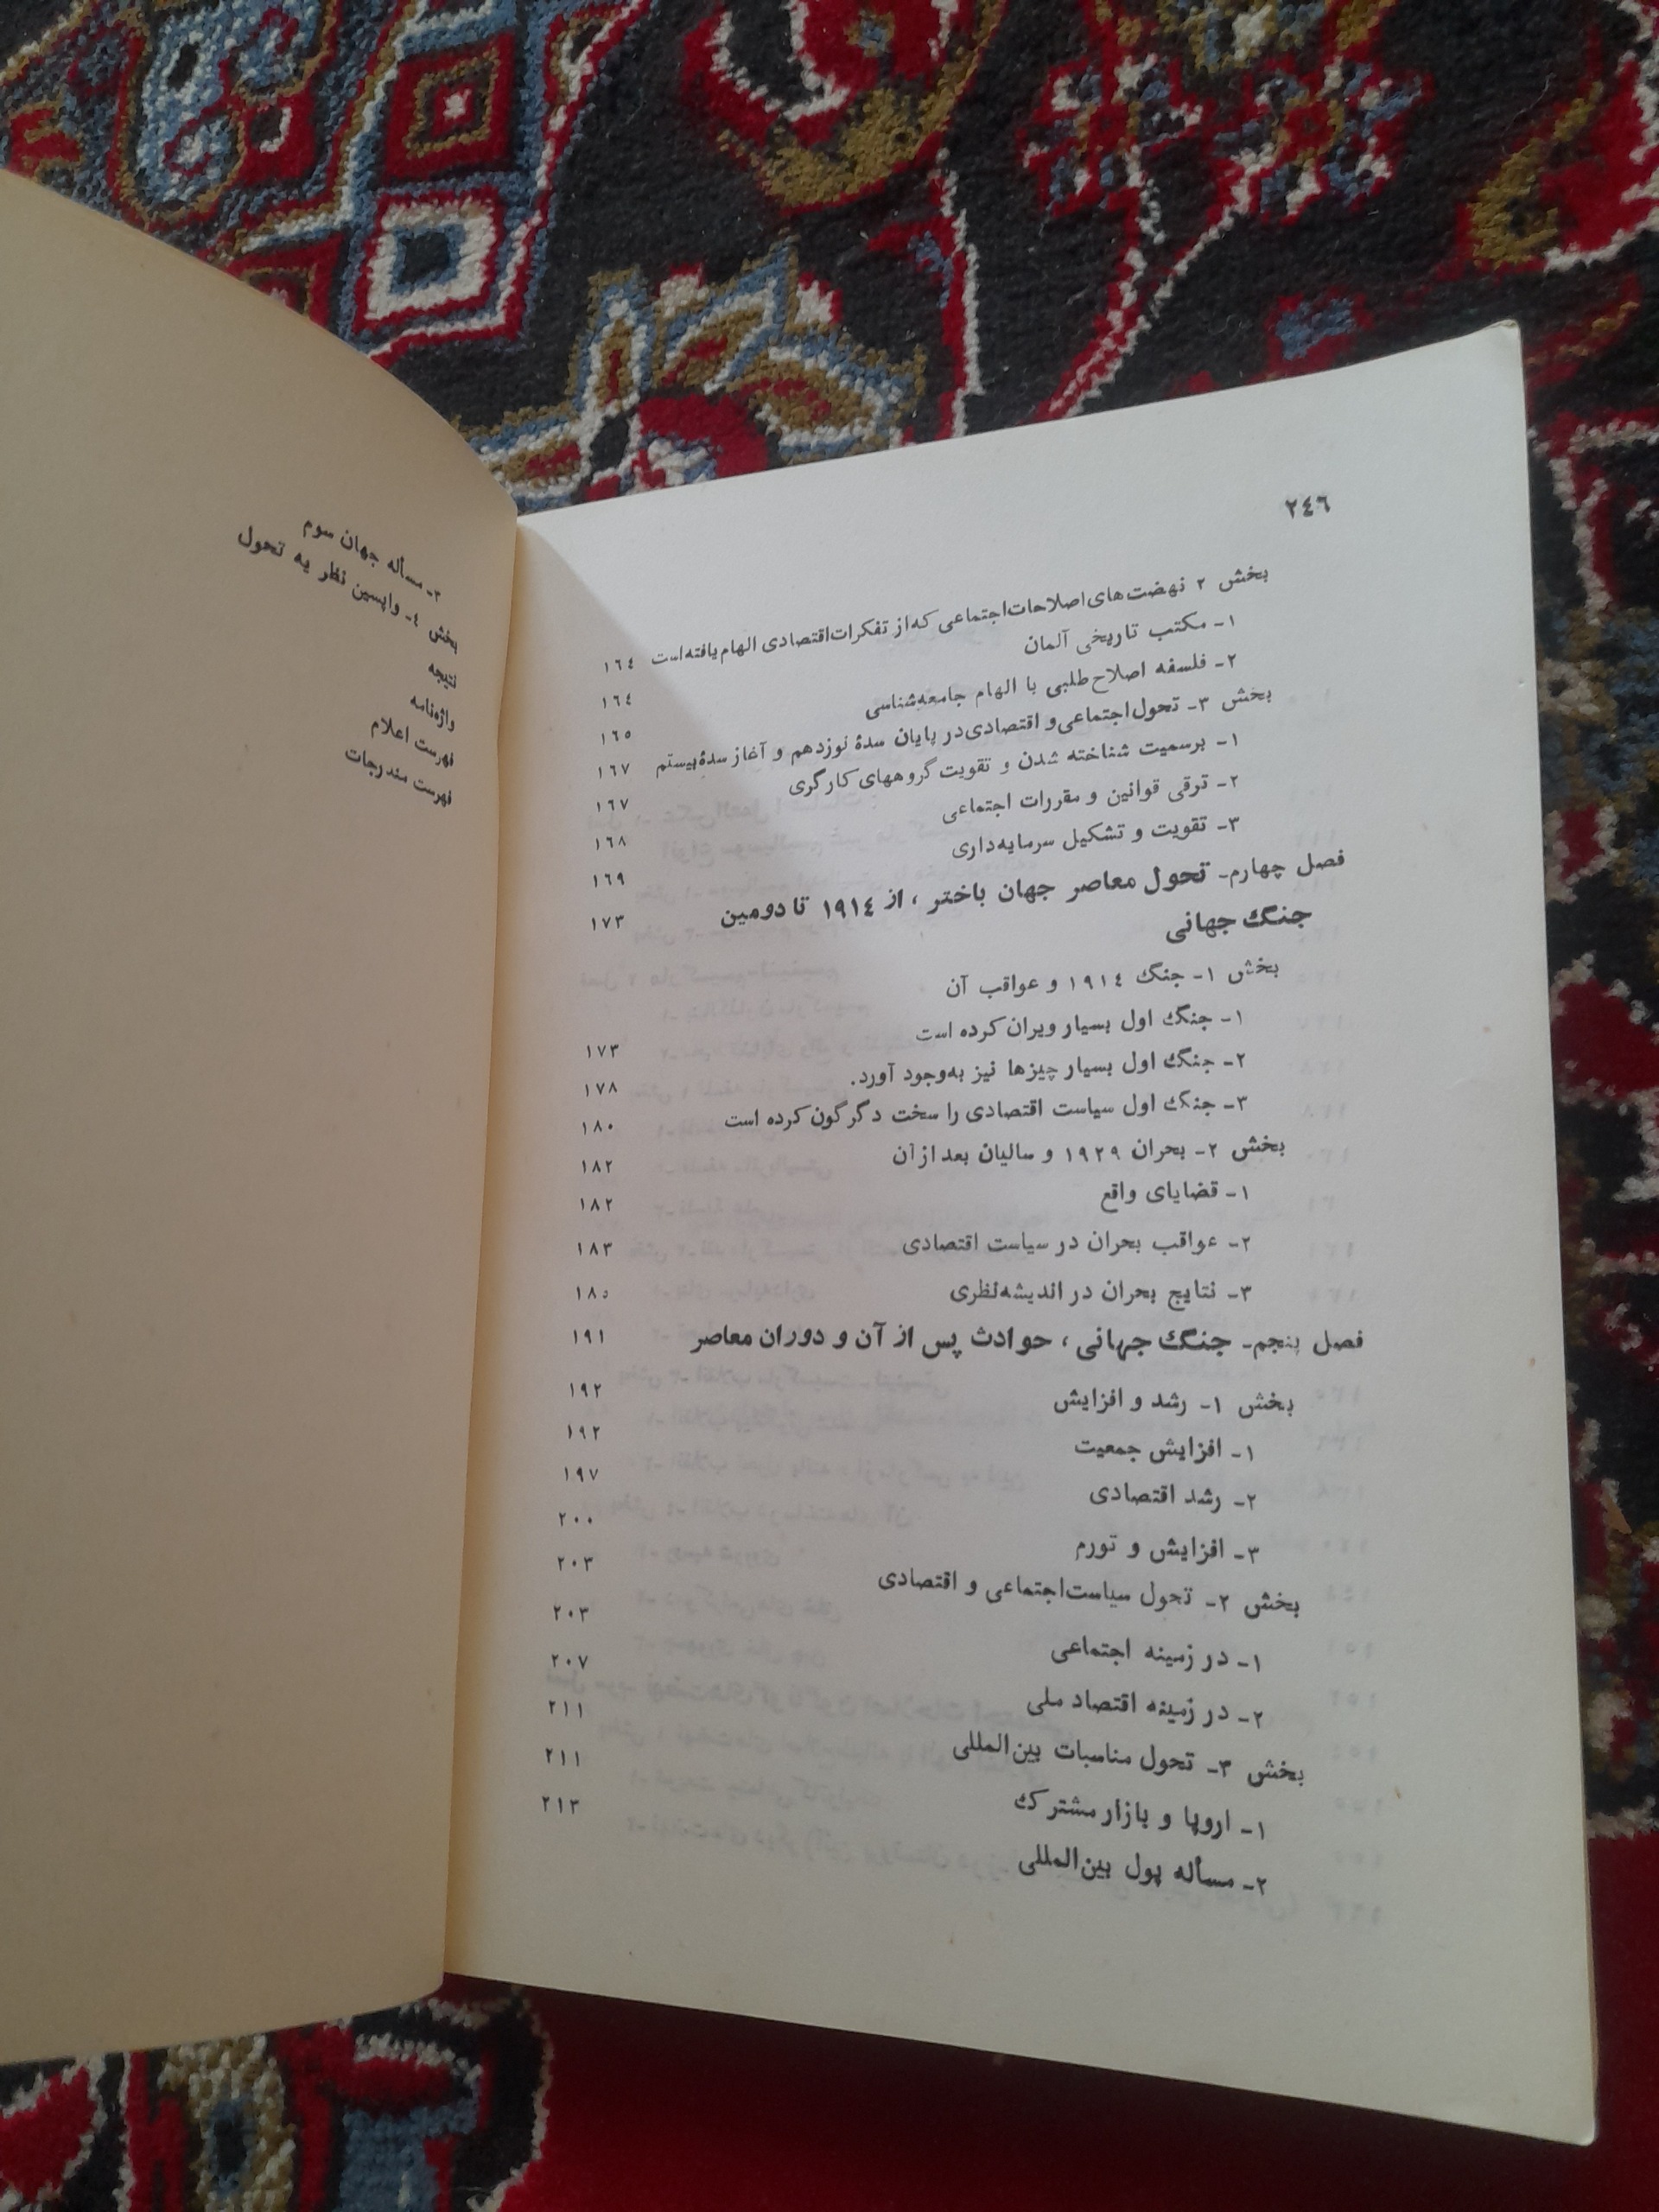 ٢٤٦
بخش ٢ نهضت‌های اصلاحات اجتماعی که از تفکرات اقتصادی الهام یافته است ١٦٤
١- مکتب تاریخی آلمان ١٦٤
٢- فلسفه اصلاح طلبی با الهام جامعه‌شناسی ١٦٥
بخش ٣- تحول اجتماعی و اقتصادی در پایان سدهٔ نوزدهم و آغاز سدهٔ بیستم ١٦٧
١- برسمیت شناخته شدن و تقویت گروههای کارگری ١٦٧
٢- ترقی قوانین و مقررات اجتماعی ١٦٨
٣- تقویت و تشکیل سرمایه‌داری ١٦٩
فصل چهارم- تحول معاصر جهان باختر، از ١٩١٤ تا دومین ١٧٣
جنگ جهانی
بخش ١- جنگ ١٩١٤ و عواقب آن
١- جنگ اول بسیار ویران کرده است ١٧٣
٢- جنگ اول بسیار چیزها نیز به‌وجود آورد. ١٧٨
٣- جنگ اول سیاست اقتصادی را سخت دگرگون کرده است ١٨٠
بخش ٢- بحران ١٩٢٩ و سالیان بعد از آن ١٨٢
١- قضایای واقع ١٨٢
٢- عواقب بحران در سیاست اقتصادی ١٨٣
٣- نتایج بحران در اندیشه‌نظری ١٨٥
فصل پنجم- جنگ جهانی، حوادث پس از آن و دوران معاصر ١٩١
بخش ١- رشد و افزایش ١٩٢
١- افزایش جمعیت ١٩٢
٢- رشد اقتصادی ١٩٧
٣- افزایش و تورم ٢٠٠
بخش ٢- تحول سیاست اجتماعی و اقتصادی ٢٠٣
١- در زمینه اجتماعی ٢٠٣
٢- در زمینه اقتصاد ملی ٢٠٧
بخش ٣- تحول مناسبات بین‌المللی ٢١١
١- اروپا و بازار مشترک ٢١١
٢- مسأله پول بین‌المللی ٢١٣
٣- مسأله جهان سوم
بخش ٤- واپسین نظر به تحول
نتیجه
واژه‌نامه
فهرست اعلام
فهرست مندرجات